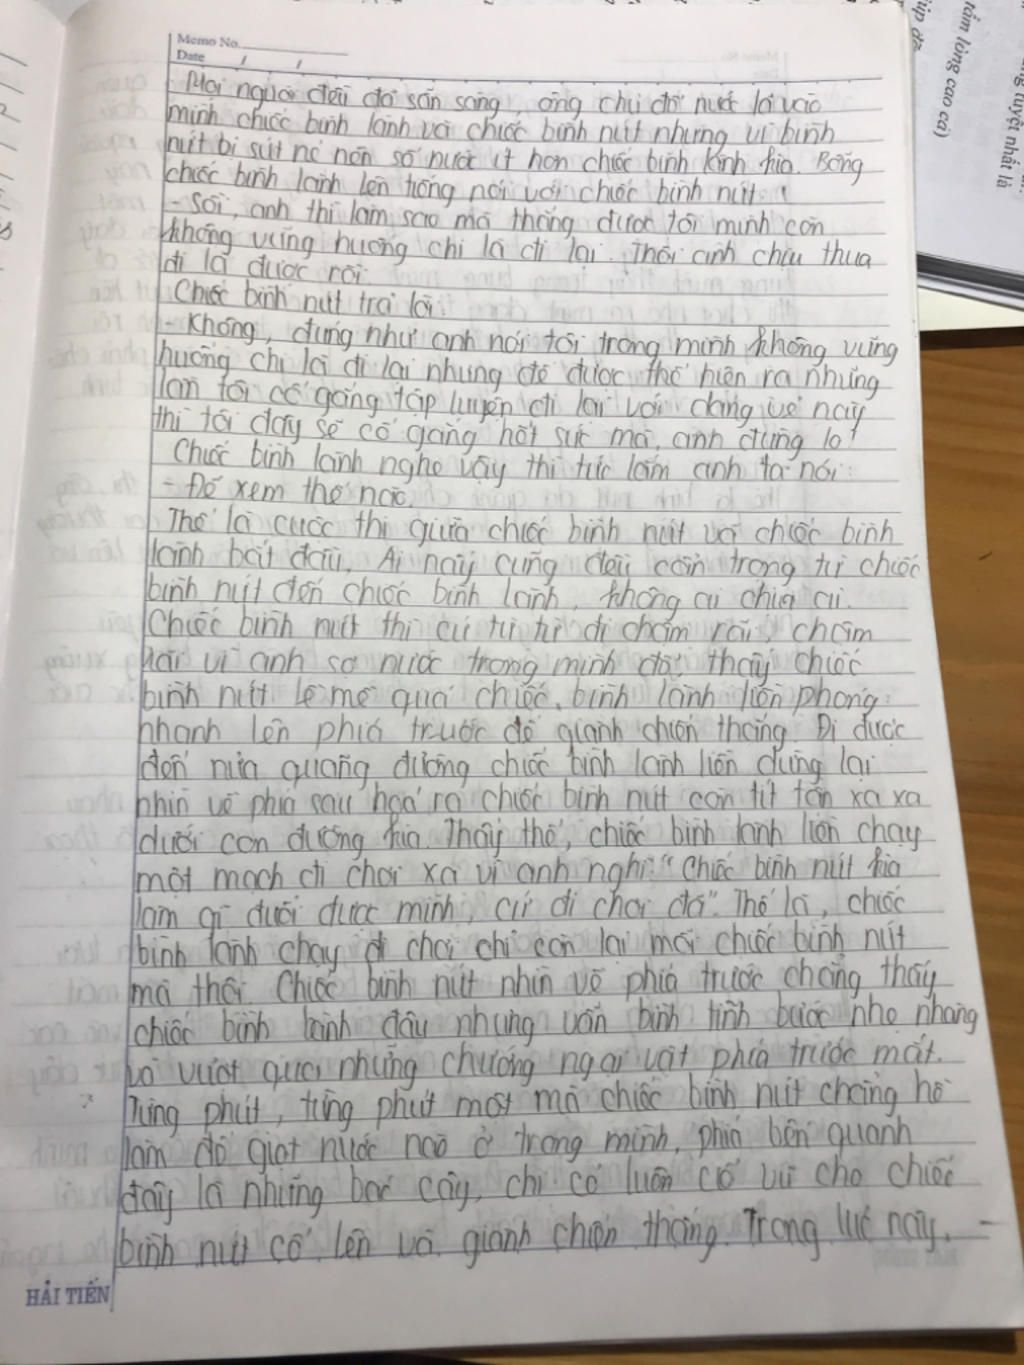 Memo No.
Date / /
Mọi người đều đã sẵn sàng, ông chủ đổ nước là vào
mình chiếc bình lành và chiếc bình nứt nhưng vì bình
nứt bị sứt nẻ nên số nước ít hơn chiếc bình kính kia. Bỗng
chiếc bình lành lên tiếng nói với chiếc bình nứt:
- Sời, anh thì làm sao mà thắng được tôi mình còn
không vững huống chi là đi lại. Thôi anh chịu thua
đi là được rồi.
Chiếc bình nứt trả lời:
- Không, đúng như anh nói tôi trong mình không vững
huống chi là đi lại nhưng để được thể hiện ra những
lần tôi cố gắng tập luyện đi lại với dáng vẻ này
thì tôi đây sẽ cố gắng hết sức mà, anh đừng lo!
Chiếc bình lành nghe vậy thì tức lắm anh ta nói:
- Để xem thế nào.
Thế là cuộc thi giữa chiếc bình nứt và chiếc bình
lành bắt đầu. Ai nấy cũng đều cẩn trọng từ chiếc
bình nứt đến chiếc bình lành, không ai chịu ai.
Chiếc bình nứt thì cứ từ từ đi chậm rãi, chậm
rãi vì anh sợ nước trong mình đổ, thấy chiếc
bình nứt lề mề quá chiếc bình lành liền phóng
nhanh lên phía trước để giành chiến thắng. Đi được
đến nửa quãng đường chiếc bình lành liền dừng lại
nhìn về phía sau hoá ra chiếc bình nứt còn tít tận xa xa
dưới con đường kia. Thấy thế, chiếc bình lành liền chạy
một mạch đi chơi xa vì anh nghĩ: "Chiếc bình nứt kia
làm gì đuổi được mình, cứ đi chơi đã". Thế là, chiếc
bình lành chạy đi chơi chỉ còn lại mỗi chiếc bình nứt
mà thôi. Chiếc bình nứt nhìn về phía trước chẳng thấy
chiếc bình lành đâu nhưng vẫn bình tĩnh bước nhẹ nhàng
và vượt qua những chướng ngại vật phía trước mắt.
Từng phút, từng phút một mà chiếc bình nứt chẳng hề
làm đổ giọt nước nào ở trong mình, phía bên quanh
đấy là những bác cây, chị cỏ luôn cổ vũ cho chiếc
bình nứt cố lên và giành chiến thắng. Trong lúc này,
HẢI TIẾN
tấm lòng cao cả)
tuyệt nhất là